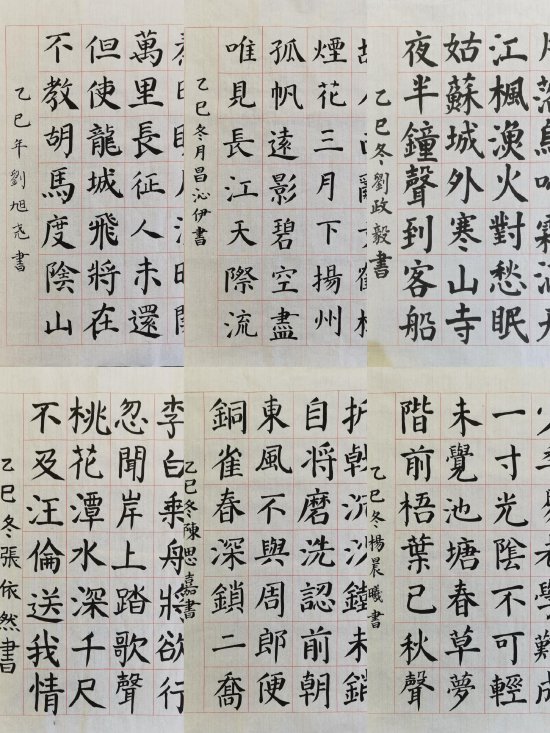 萬里長征人未還
但使龍城飛將在
不教胡馬度陰山
乙巳年劉旭尧書
煙花三月下揚州
孤帆遠影碧空盡
唯見長江天際流
乙巳冬月昌沁伊書
江楓漁火對愁眠
姑蘇城外寒山寺
夜半鐘聲到客船
乙巳冬劉政毅書
李白乘舟將欲行
忽聞岸上踏歌聲
桃花潭水深千尺
不及汪倫送我情
乙巳冬張依然書
折戟沉沙鐵未銷
自将磨洗認前朝
東風不與周郎便
銅雀春深鎖二喬
乙巳冬陳思嘉書
一寸光陰不可輕
未覺池塘春草夢
階前梧葉已秋聲
乙巳冬楊晨曦書